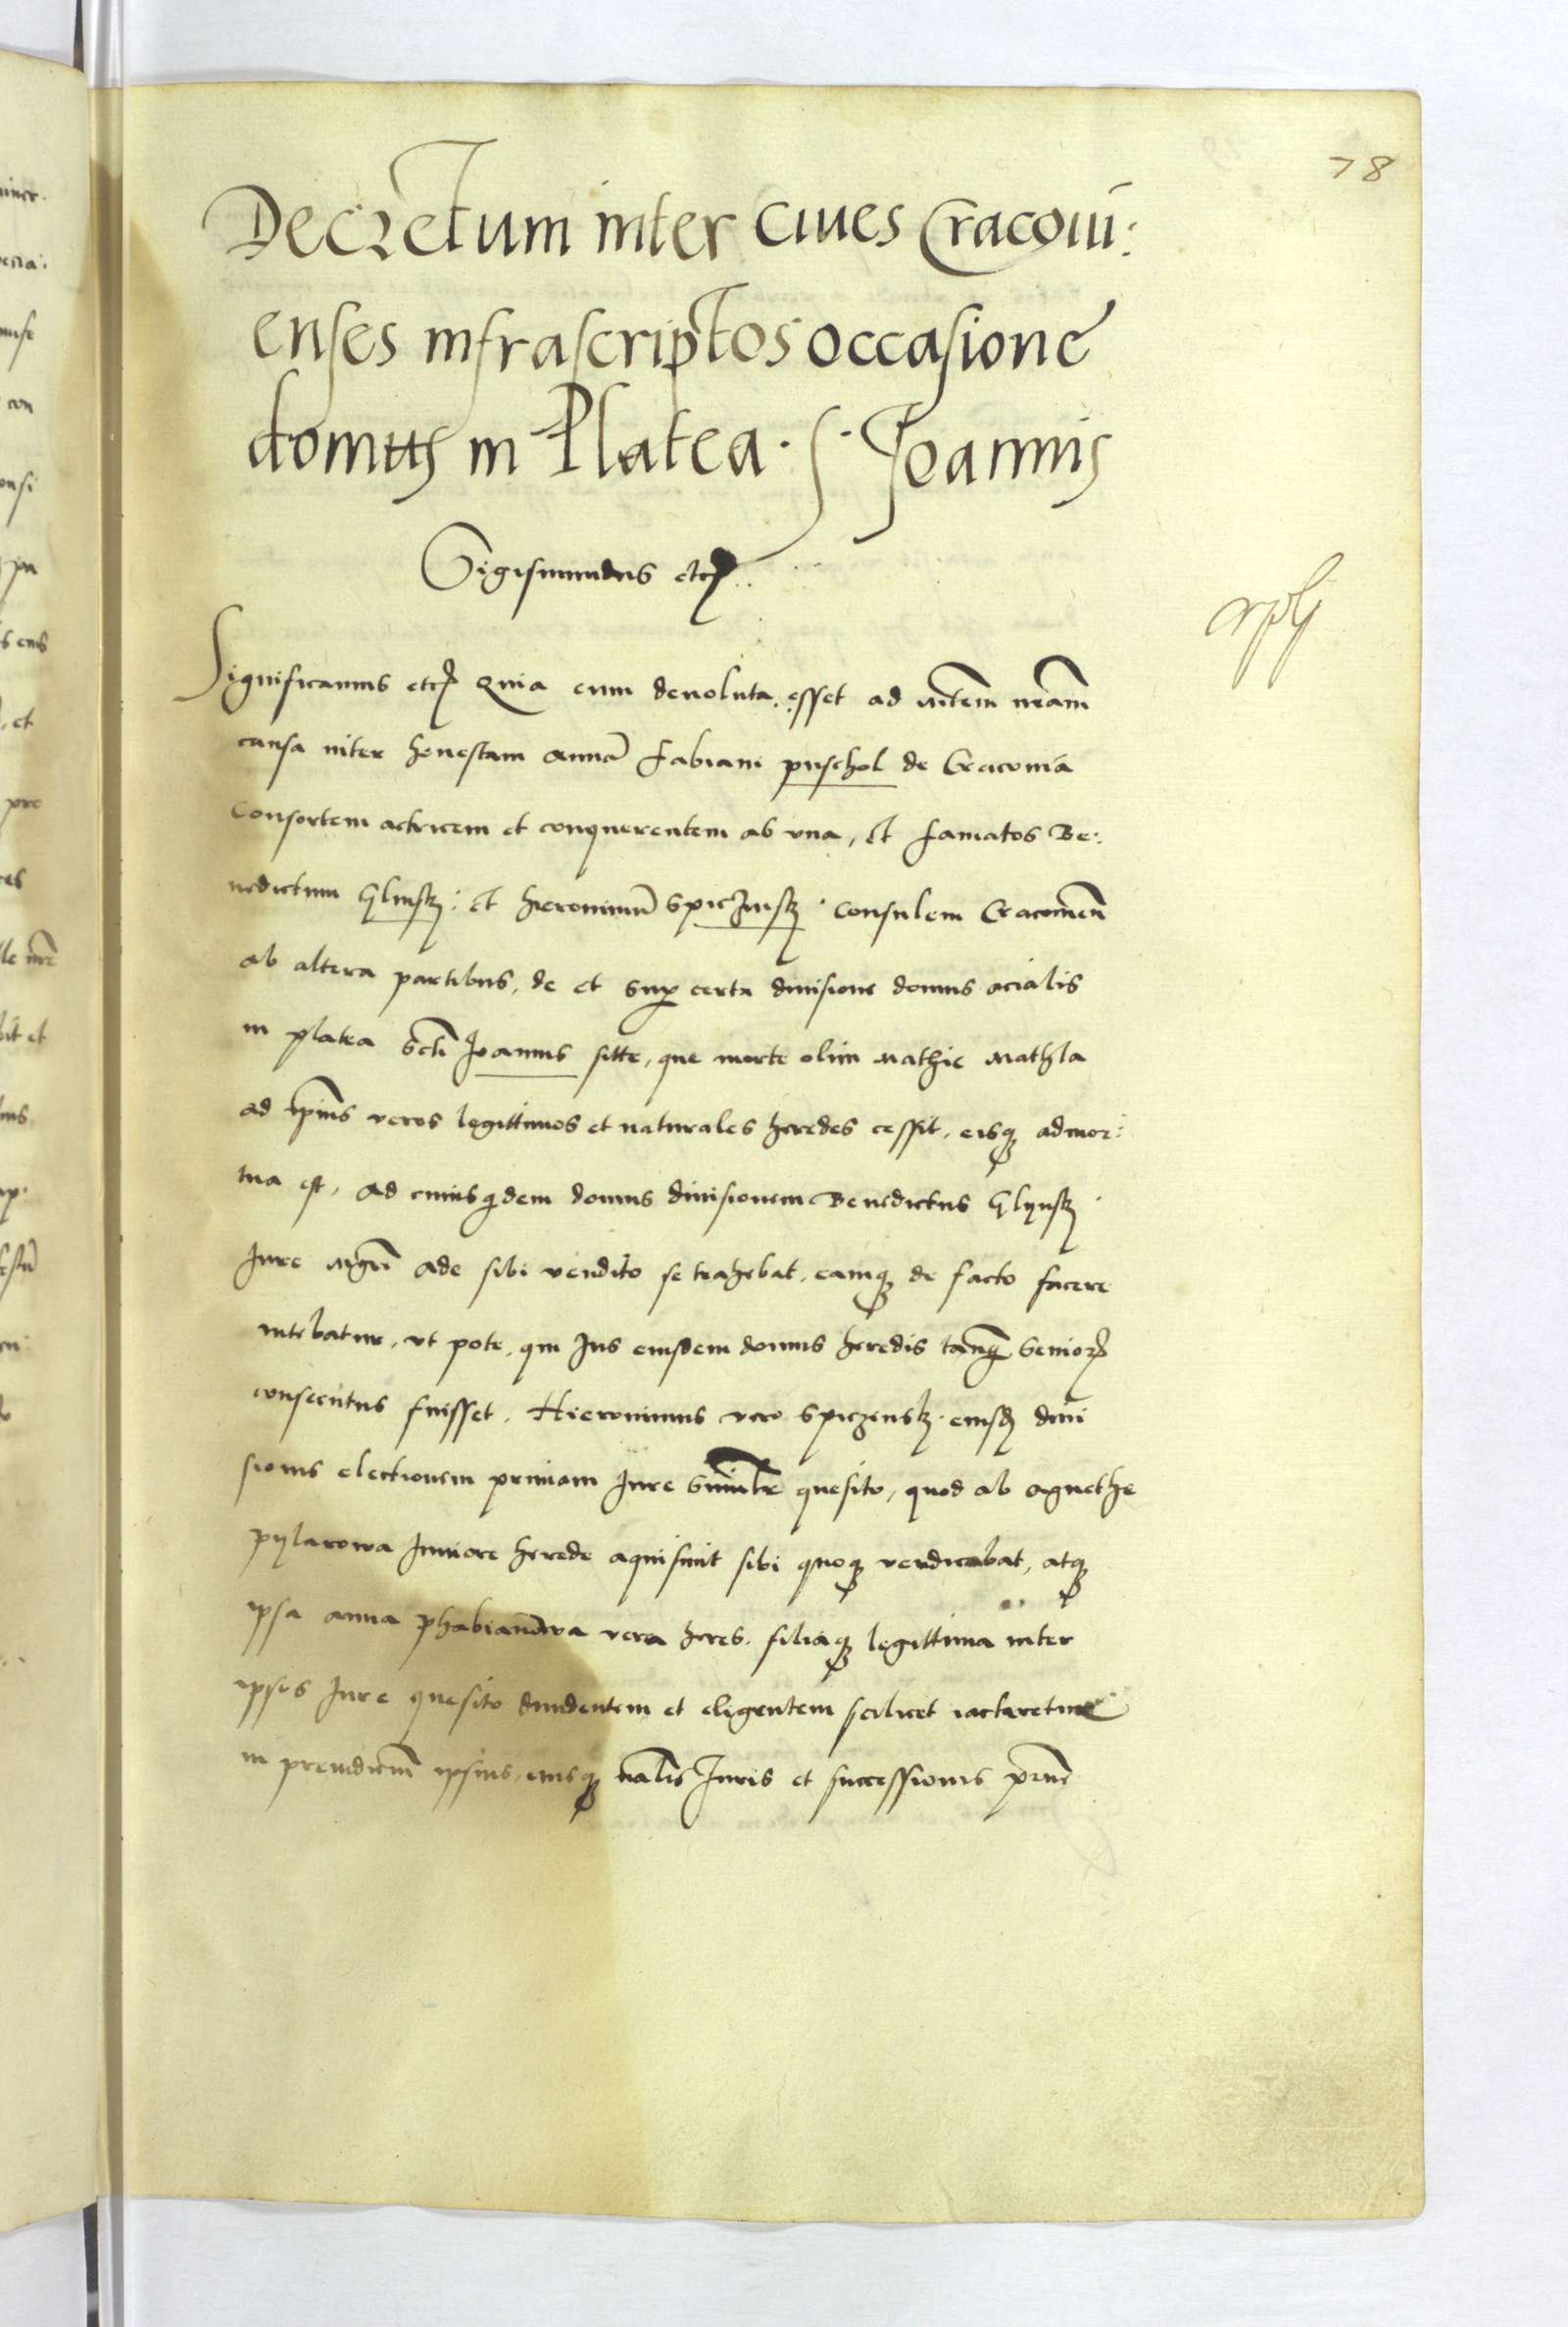 78
Decretum inter ciues Cracoui:
enses infrascriptos occasione
domus in Platea S. Joannis
Sigismundus etc.
Significamus etc. Quia cum deuoluta esset ad Mtem nram
causa inter honestam Anna Fabiani puschol de Cracouia
consortem actricem et conquerentem ab vna, et famatos Be:
nedictum Glinsky: et Hieronimu Spiczinsky consulem Cracouien
ab altera partibus, de et sup certa diuisione domus acialis
in platea Scti Joannis sitte, que morte olim Mathie Mathla
ad ipius veros legittimos et naturales heredes cessit, eisq admor:
tua est, ad cuius qdem domus diuisionem Benedictus Glynsky
Jure Mgri Ade sibi vendito se trahebat, eamq de facto facere
nitebatur, vt pote, qui Jus eiusdem domus heredis tanq senior
consecutus fuisset, Hieronimus vero Spiczensky eiusd diui
sionis electionem primam Jure similr quesito, quod ab Agnethe
pylarowa Juniore herede aquisiuit sibi quoq vendicabat, atq
ipsa Anna phabianowa vera heres, filiaq legittima inter
ipsos Jure quesito diuidentem et eligentem scilicet iactaretur
in preiudicium ipsius, eiusq nalis Juris et successionis